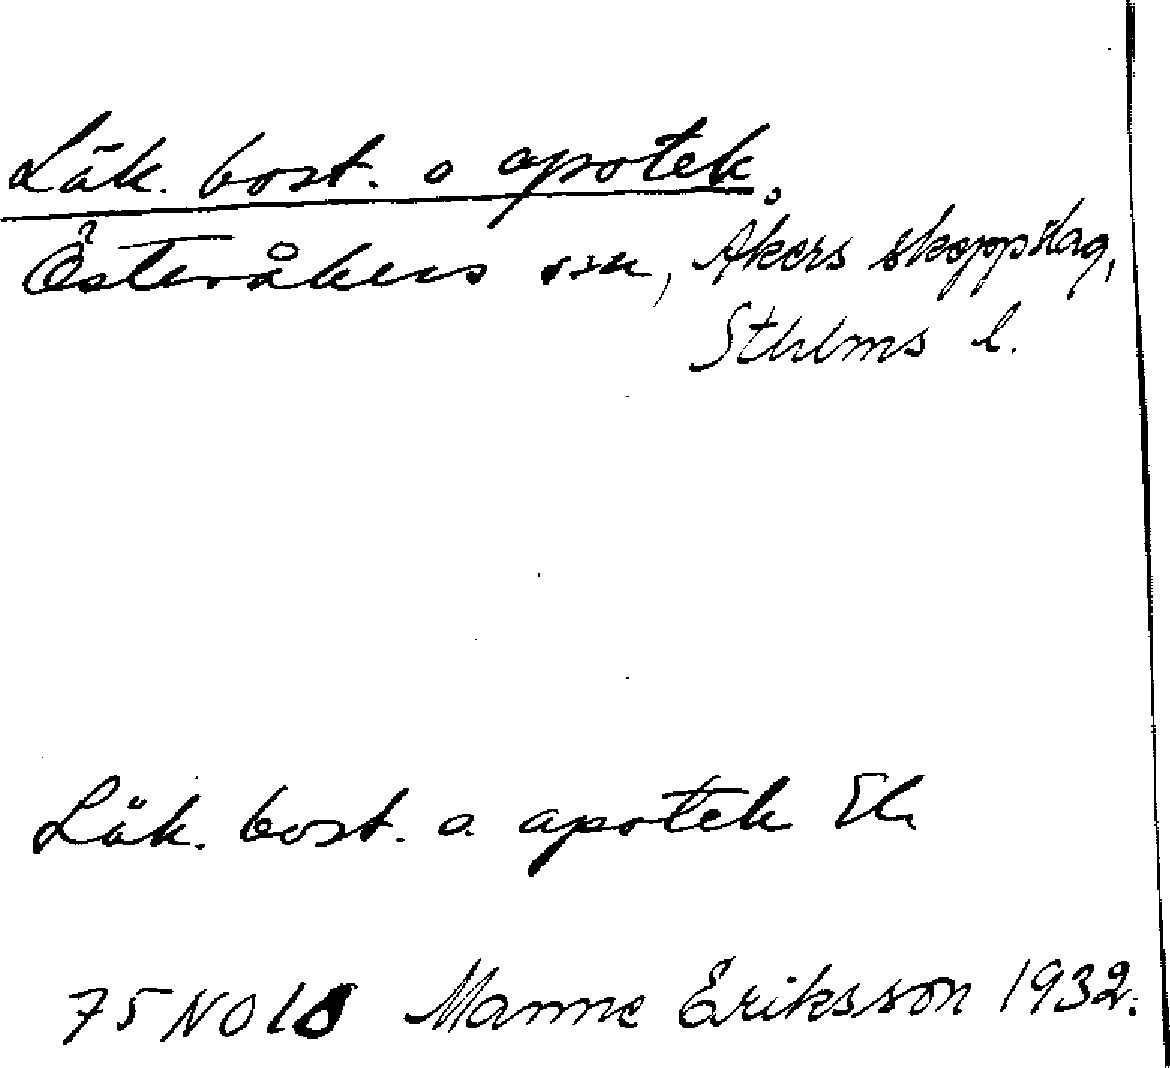 Läk. bost. o apotek
Österåkers sn, Åkers skeppslag,
Sthlms l.
Läk. bost. o apotek Ek
75 NO Manne Eriksson 1932.